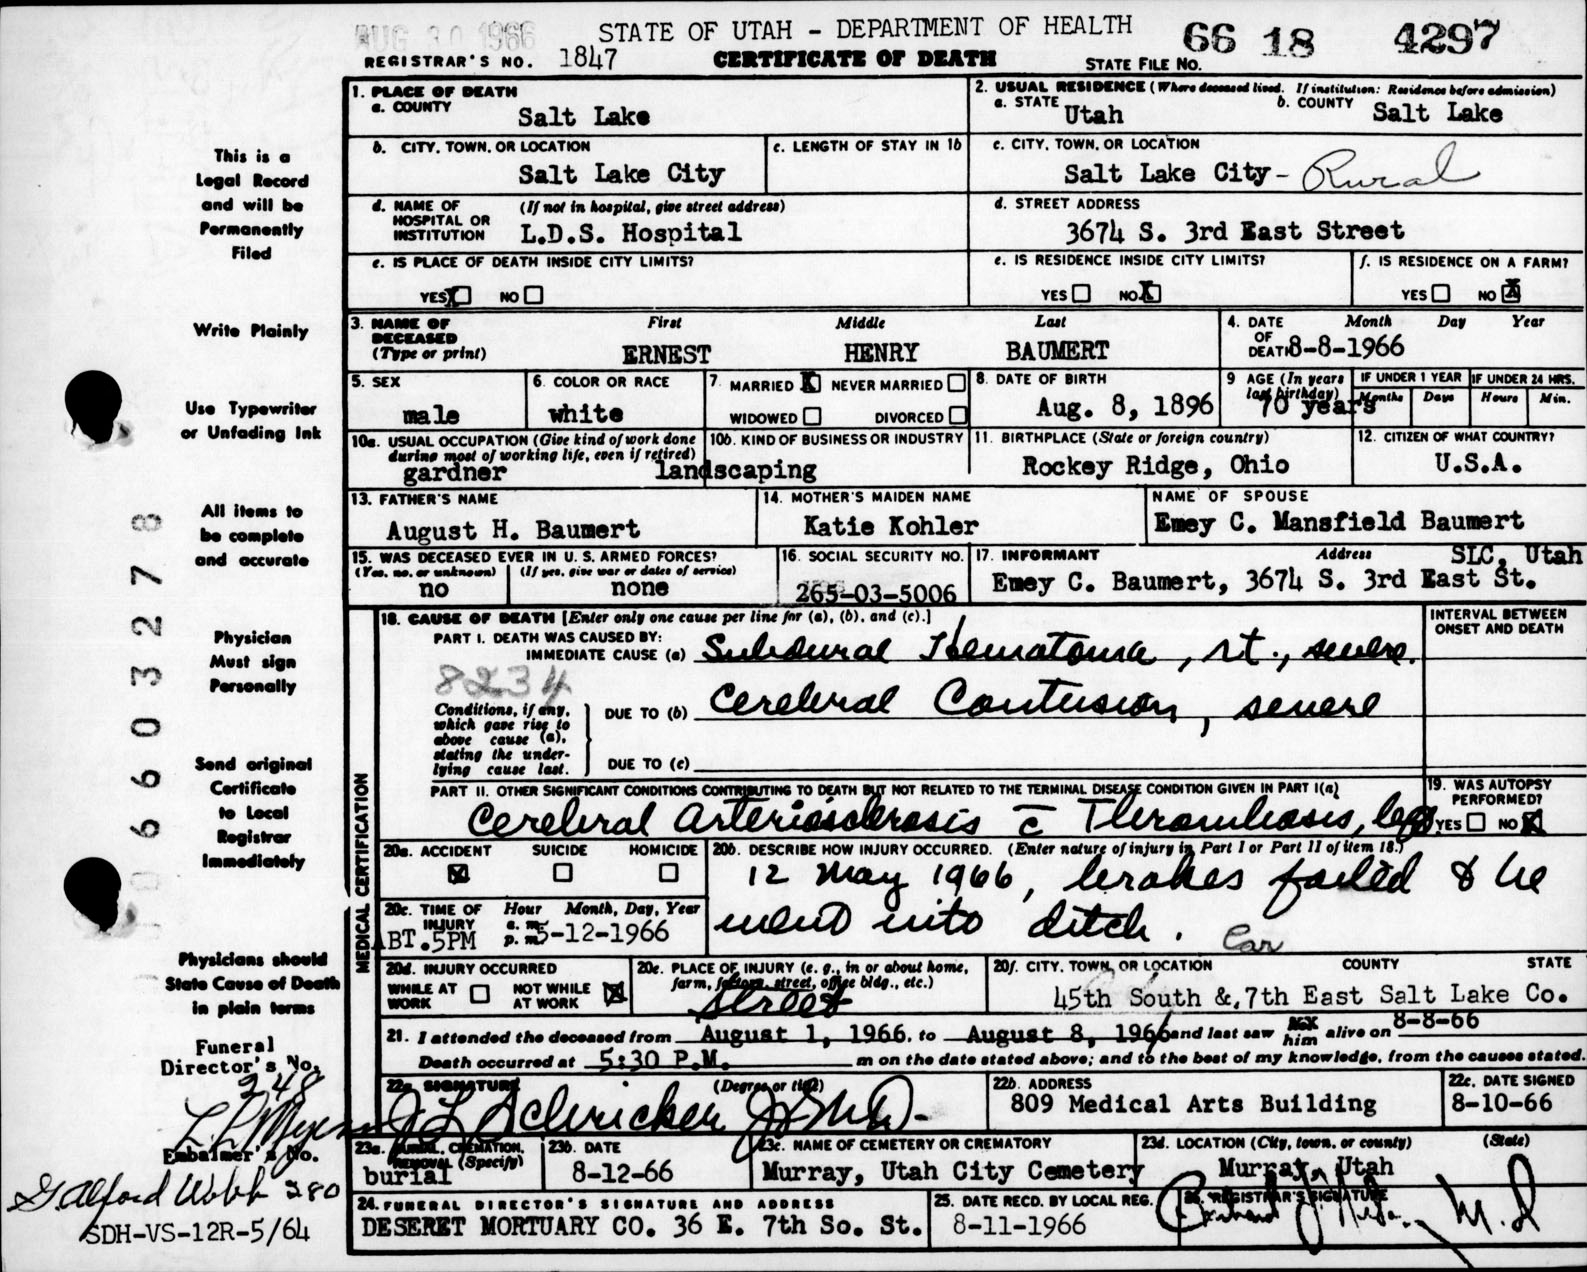 AUG 30 1966
STATE OF UTAH - DEPARTMENT OF HEALTH
66 18 4297
REGISTRAR'S NO. 1847
CERTIFICATE OF DEATH
STATE FILE NO.
1. PLACE OF DEATH
a. COUNTY
Salt Lake
2. USUAL RESIDENCE (Where deceased lived. If institution: Residence before admission)
a. STATE Utah
b. COUNTY Salt Lake
b. CITY, TOWN, OR LOCATION
Salt Lake City
c. LENGTH OF STAY IN 1b
c. CITY, TOWN, OR LOCATION
Salt Lake City - Rural
d. NAME OF HOSPITAL OR INSTITUTION
(If not in hospital, give street address)
L.D.S. Hospital
d. STREET ADDRESS
3674 S. 3rd East Street
e. IS PLACE OF DEATH INSIDE CITY LIMITS?
YES X NO
e. IS RESIDENCE INSIDE CITY LIMITS?
YES NO X
f. IS RESIDENCE ON A FARM?
YES NO X
3. NAME OF DECEASED
(Type or print)
First Middle Last
ERNEST HENRY BAUMERT
4. DATE OF DEATH
Month Day Year
8-8-1966
5. SEX
male
6. COLOR OR RACE
white
7. MARRIED X NEVER MARRIED
WIDOWED DIVORCED
8. DATE OF BIRTH
Aug. 8, 1896
9 AGE (In years last birthday)
70 years
IF UNDER 1 YEAR
Months Days
IF UNDER 24 HRS.
Hours Min.
10a. USUAL OCCUPATION (Give kind of work done during most of working life, even if retired)
gardner
10b. KIND OF BUSINESS OR INDUSTRY
landscaping
11. BIRTHPLACE (State or foreign country)
Rockey Ridge, Ohio
12. CITIZEN OF WHAT COUNTRY?
U.S.A.
13. FATHER'S NAME
August H. Baumert
14. MOTHER'S MAIDEN NAME
Katie Kohler
NAME OF SPOUSE
Emey C. Mansfield Baumert
15. WAS DECEASED EVER IN U. S. ARMED FORCES?
(Yes, no, or unknown) (If yes, give war or dates of service)
no none
16. SOCIAL SECURITY NO.
265-03-5006
17. INFORMANT Address
SLC, Utah
Emey C. Baumert, 3674 S. 3rd East St.
18. CAUSE OF DEATH [Enter only one cause per line for (a), (b), and (c).]
INTERVAL BETWEEN ONSET AND DEATH
PART I. DEATH WAS CAUSED BY:
IMMEDIATE CAUSE (a) Subdural Hematoma, rt., severe.
8234
Conditions, if any, which gave rise to above cause (a), stating the underlying cause last.
DUE TO (b) Cerebral Contusion, severe
DUE TO (c)
PART II. OTHER SIGNIFICANT CONDITIONS CONTRIBUTING TO DEATH BUT NOT RELATED TO THE TERMINAL DISEASE CONDITION GIVEN IN PART I(a)
Cerebral arteriosclerosis c̄ Thrombosis, leg
19. WAS AUTOPSY PERFORMED?
YES NO X
20a. ACCIDENT SUICIDE HOMICIDE
X
20b. DESCRIBE HOW INJURY OCCURRED. (Enter nature of injury in Part I or Part II of item 18.)
12 May 1966, brakes failed & he
went into ditch. Car
20c. TIME OF INJURY
Hour Month, Day, Year
a. m.
p. m.
ABT.5PM 5-12-1966
20d. INJURY OCCURRED
WHILE AT WORK NOT WHILE AT WORK X
20e. PLACE OF INJURY (e. g., in or about home, farm, factory, street, office bldg., etc.)
Street
20f. CITY, TOWN, OR LOCATION COUNTY STATE
45th South & 7th East Salt Lake Co.
21. I attended the deceased from August 1, 1966, to August 8, 1966 and last saw him alive on 8-8-66
Death occurred at 5:30 P.M. m on the date stated above; and to the best of my knowledge, from the causes stated.
22a. SIGNATURE (Degree or title)
J L Schricker Jr M.D.
22b. ADDRESS
809 Medical Arts Building
22c. DATE SIGNED
8-10-66
23a. BURIAL, CREMATION, REMOVAL (Specify)
burial
23b. DATE
8-12-66
23c. NAME OF CEMETERY OR CREMATORY
Murray, Utah City Cemetery
23d. LOCATION (City, town, or county) (State)
Murray, Utah
24. FUNERAL DIRECTOR'S SIGNATURE AND ADDRESS
DESERET MORTUARY CO. 36 E. 7th So. St.
25. DATE RECD. BY LOCAL REG.
8-11-1966
26. REGISTRAR'S SIGNATURE
M.D
MEDICAL CERTIFICATION
This is a
Legal Record
and will be
Permanently
Filed
Write Plainly
Use Typewriter
or Unfading Ink
All items to
be complete
and accurate
Physician
Must sign
Personally
Send original
Certificate
to Local
Registrar
Immediately
Physicians should
State Cause of Death
in plain terms
Funeral
Director's No.
248
L L Myers
Embalmer's No.
G. Alford Webb 280
SDH-VS-12R-5/64
0660 3278